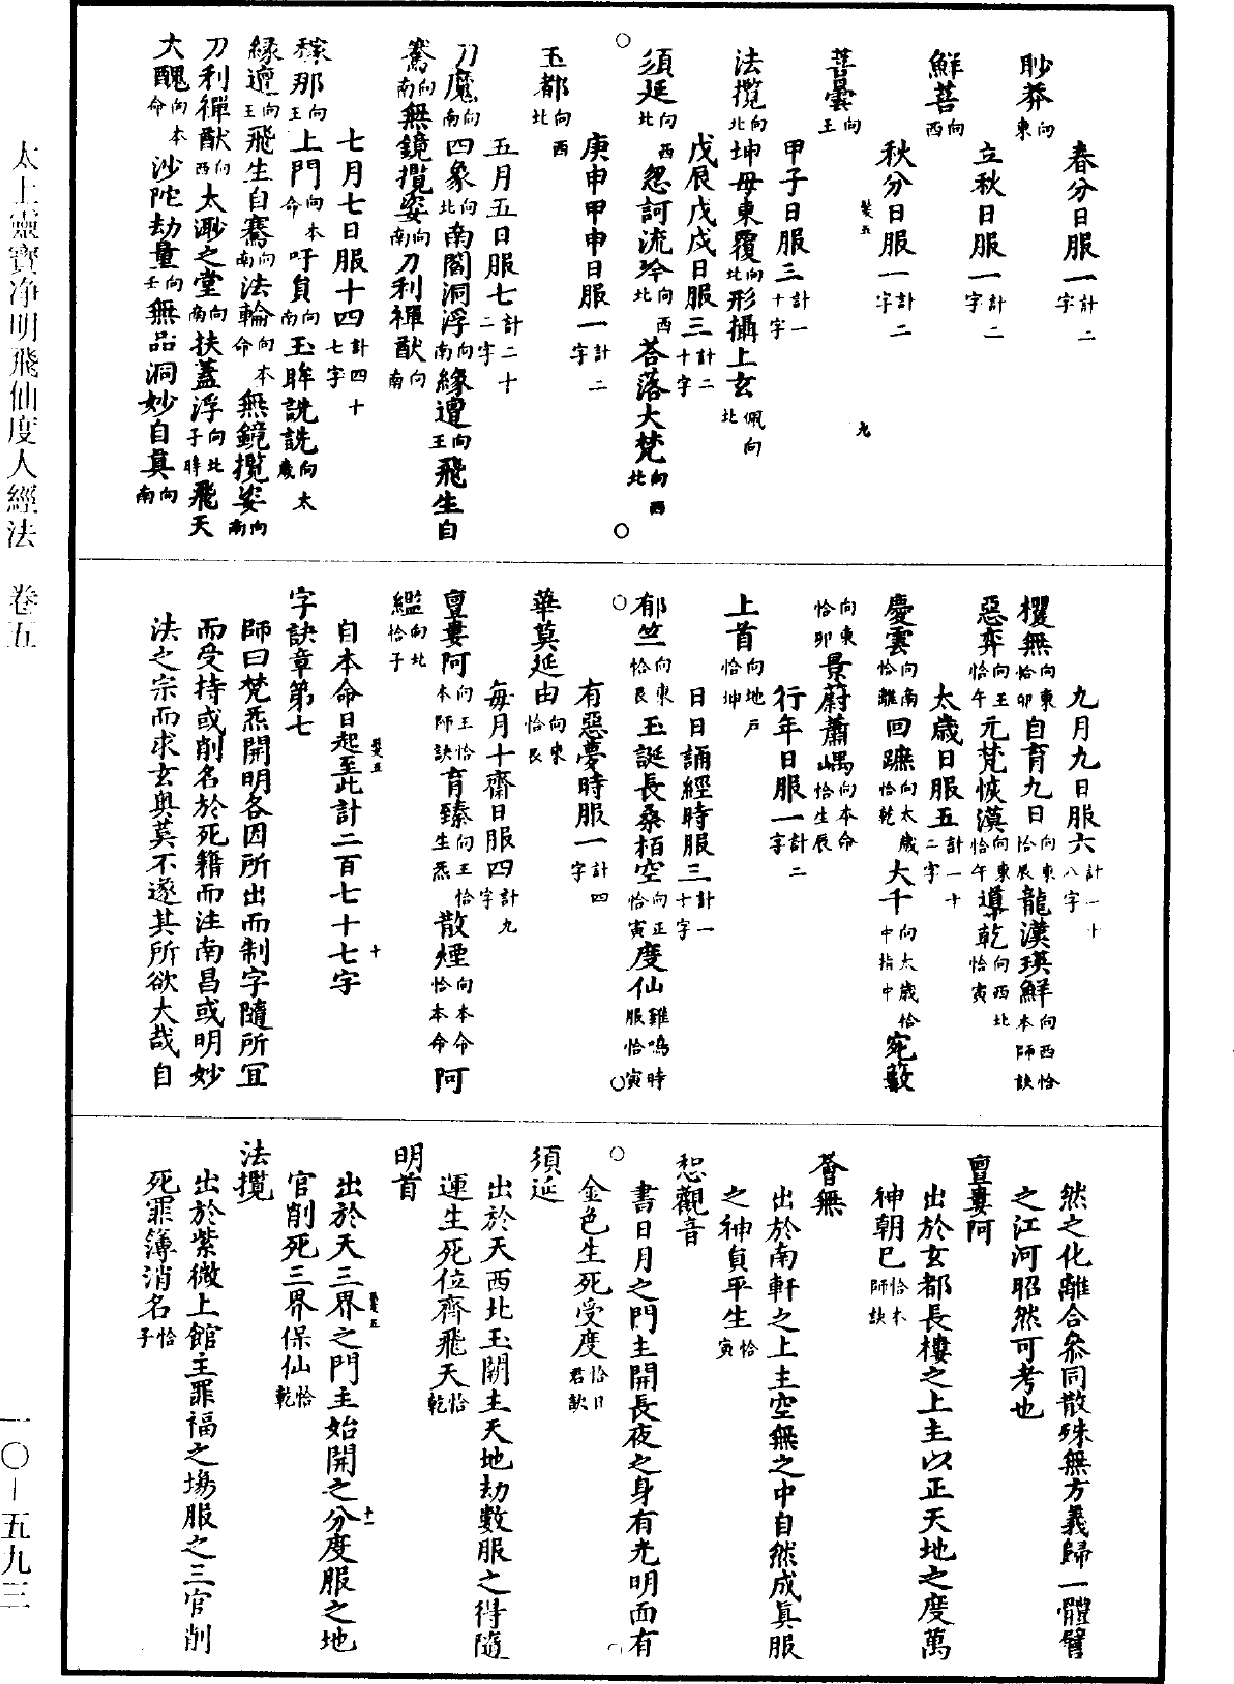 春分日服一計二字
眇莽向東
立秋日服一計二字
鮮菩向西
秋分日服一計二字
菩曇向王
甲子日服三計一十字
法攬向北坤母東覆向北形攝上玄佩向北
戊辰戊戌日服三計二十字
須延向西北忽訶流吟向西北答落大梵向西北
庚申甲申日服一計二字
玉都向西北
五月五日服七計二十二字
刀魔向南四象向北南閻洞浮向南緣邅向王飛生自
騫向南無鏡攬姿向南刀利禪猷向南
七月七日服十四計四十七字
稼那向王上門向本命吁員向南玉眸詵詵向太歲
緣邅向王飛生自騫向南法輪向本命無鏡攬姿向南
刀利禪猷向西太㴸之堂向南扶蓋浮向北子時飛天
大醜向本命沙陀劫量向壬無品洞妙自真向南
九月九日服六計一十八字
櫂無向東恰卯自育九日向東恰辰龍漢瑛鮮向西恰本師訣
惡弈向王恰午元梵恢漠向東恰午導乾向西北恰寅
太歲日服五計一十二字
慶雲向南恰離回蹠向太歲恰乾大千向太歲恰中指中宛藪
向東恰卯景蔚蕭嵎向本命恰生辰
行年日服一計二字
上首向地戶恰坤
日日誦經時服三計一十字
郁竺向東恰艮玉誕長桑栢空向正恰寅度仙雞鳴時服恰寅
有惡夢時服一計四字
華莫延由向東恰艮
每月十齋日服四計九字
亶婁阿向王恰本師訣育臻向王恰生炁散煙向本命恰本命阿
䍀向北恰子
自本命日起至此計二百七十七字
字訣章第七
師曰梵炁開明各因所出而制字隨所宜
而受持或削名於死籍而注南昌或明妙
法之宗而求玄奧莫不遂其所欲大哉自
然之化離合叅同散殊無方義歸一體譬
之江河昭然可考也
亶婁阿
出於玄都長樓之上主以正天地之度萬
神朝已恰本師訣
薈無
出於南軒之上主空無之中自然成真服
之神貞平生恰寅
恕觀音
書日月之門主開長夜之身有光明面有
金色生死受度恰日君訣
須延
出於天西北玉闕主天地劫數服之得隨
運生死位齊飛天恰乾
明首
出於天三界之門主始開之分度服之地
官削死三界保仙恰乾
法攬
出於紫微上館主罪福之塲服之三官削
死罪簿消名恰子
太上靈寶净明飛仙度人經法　卷五
一〇－五九三